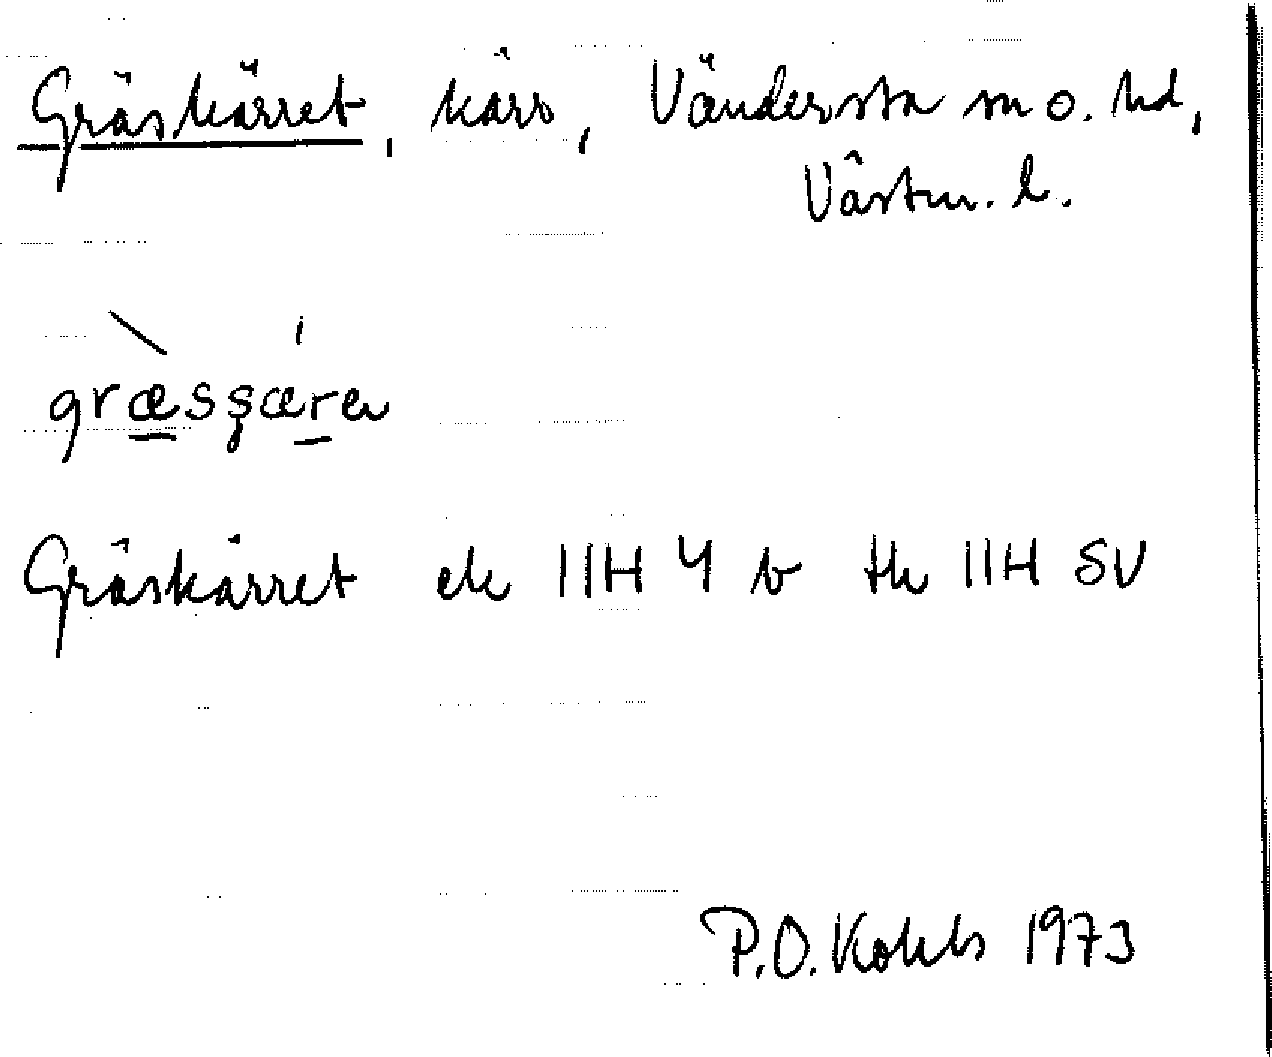 Gräskärret, kärr, Vändersta sn o. hd,
Västm. l.
græsʂæra
Gräskärret ek 11H 4 b tk 11H SV
P.O. Kohls 1973